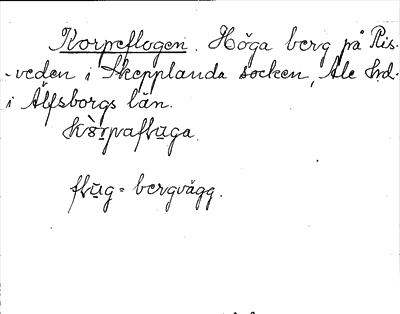 Korpeflogen. Höga berg på Ris-
-veden i Skepplanda socken, Ale hd.
i Älfsborgs län.
flug = bergvägg.